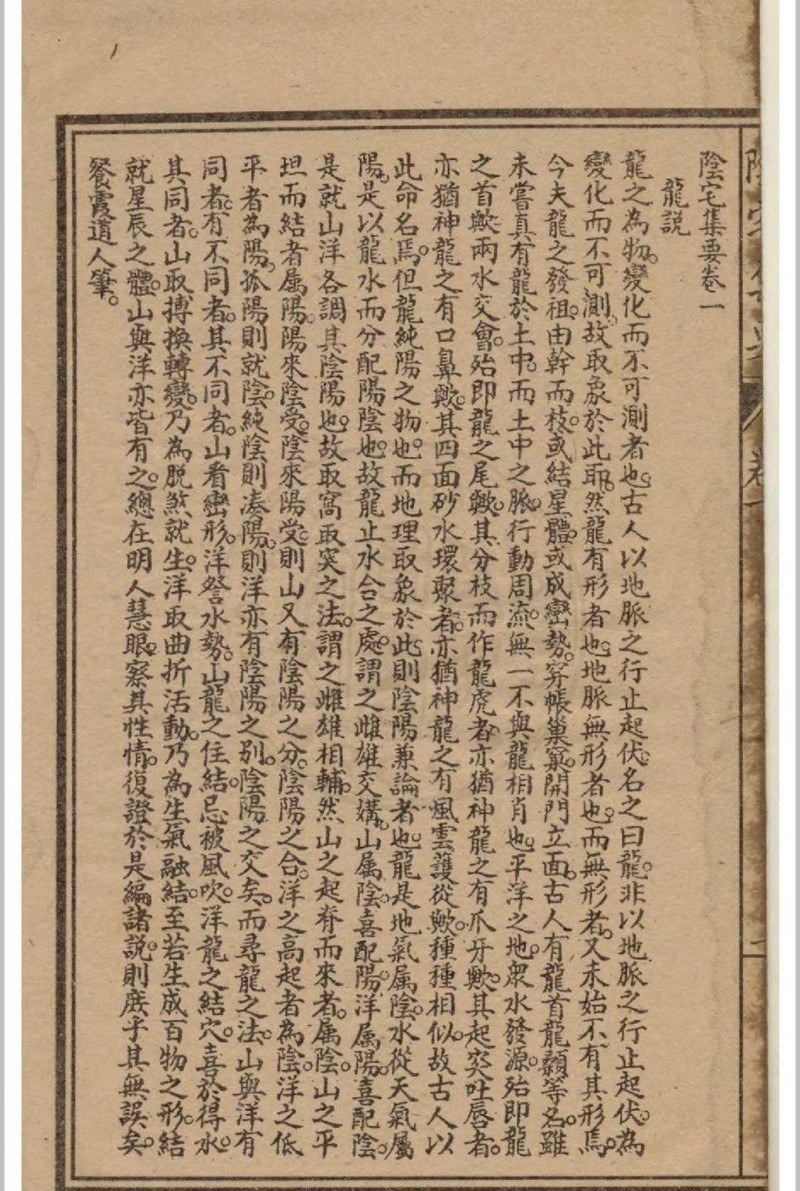 陰宅集要卷一
龍説
龍之為物。變化而不可測者也。古人以地脈之行止起伏。名之曰龍。非以地脈之行止起伏。為
變化而不可測。故取象於此耶。然龍有形者也。地脈無形者也。而無形者。又未始不有其形焉。
今夫龍之發祖。由幹而枝。或結星體。或成巒勢。穿帳巢氣。開門立面。古人有龍首龍顙等名。雖
未嘗真有龍於土中。而土中之脈。行動周流。無一不與龍相肖也。平洋之地。衆水發源。殆即龍
之首歟。兩水交會。殆即龍之尾歟。其分枝而作龍虎者。亦猶神龍之有爪牙歟。其起突吐唇者。
亦猶神龍之有口鼻歟。其四面砂水環聚者。亦猶神龍之有風雲護從歟。種種相似。故古人以
此命名焉。但龍純陽之物也。而地理取象於此。則陰陽兼論者也。龍是地氣属陰。水從天氣屬
陽。是以龍水而分配陽陰也。故龍止水合之處。謂之雌雄交媾。山属陰。喜配陽。洋属陽。喜配陰。
是就山洋各調其陰陽也。故取窩取突之法。謂之雌雄相輔。然山之起脊而來者。属陰。山之平
坦而結者属陽。陽來陰受。陰來陽受。則山又有陰陽之分。陰陽之合。洋之高起者為陰。洋之低
平者為陽。孤陽則就陰。純陰則湊陽。則洋亦有陰陽之别。陰陽之交矣。而尋龍之法。山與洋有
同者。有不同者。其不同者。山看巒形。洋詧水勢。山龍之住結。忌被風吹。洋龍之結穴。喜於得水。
其同者。山取摶換轉變。乃為脱煞就生。洋取曲折活動。乃為生氣融結。至若生成百物之形。結
就星辰之體。山與洋亦皆有之。總在明人慧眼。察其性情。復證於是編諸説。則庶乎其無誤矣。
餐霞道人筆。